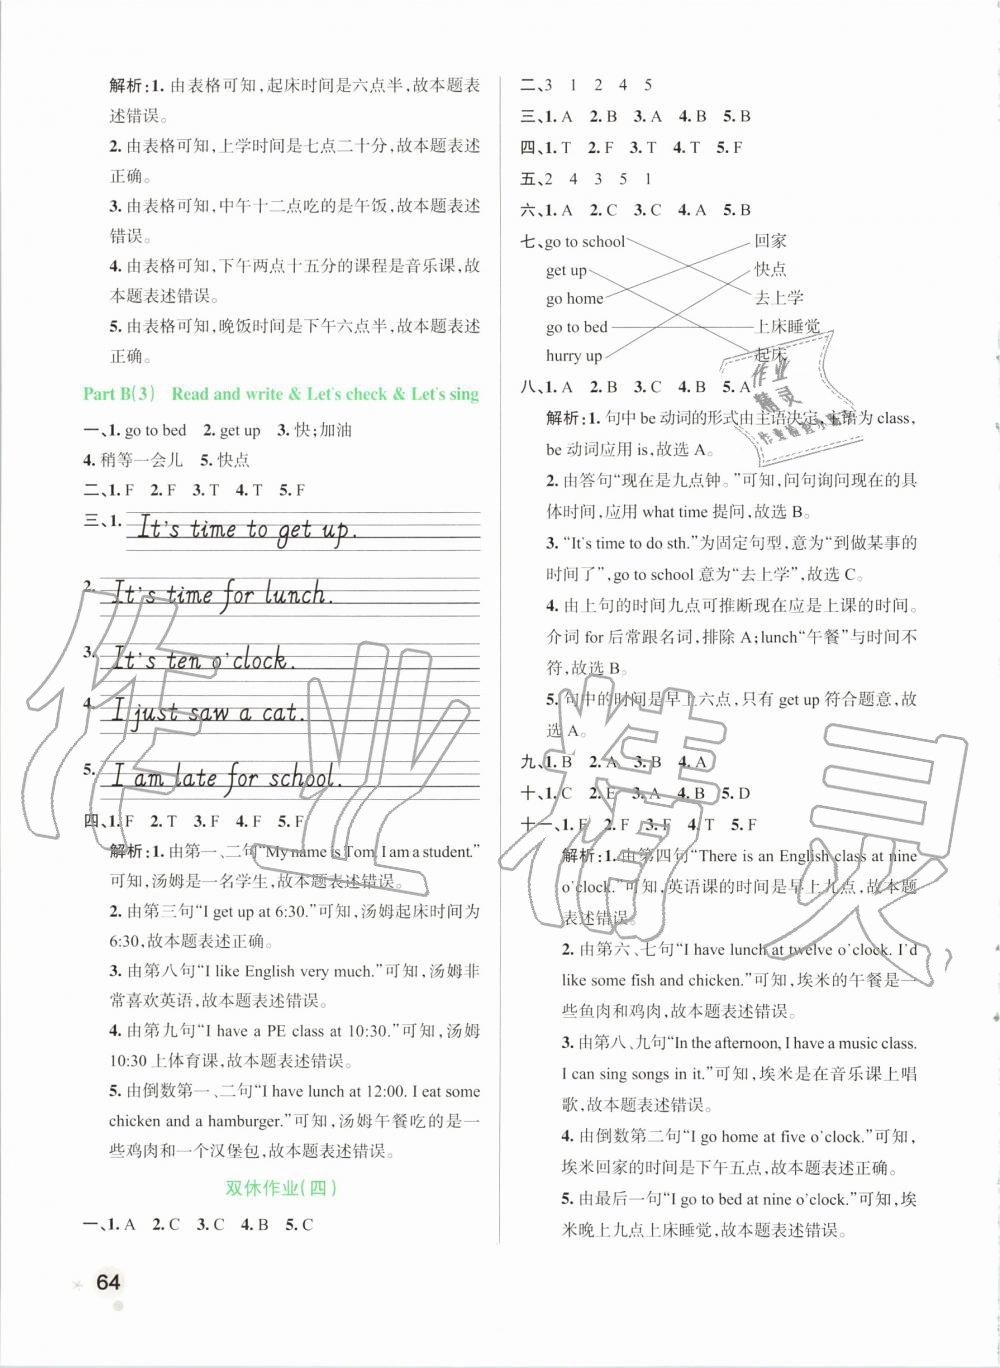 解析:1. 由表格可知,起床时间是六点半,故本题表
述错误。
2. 由表格可知,上学时间是七点二十分,故本题表述
正确。
3. 由表格可知,中午十二点吃的是午饭,故本题表述
错误。
4. 由表格可知,下午两点十五分的课程是音乐课,故
本题表述错误。
5. 由表格可知,晚饭时间是下午六点半,故本题表述
正确。
Part B(3) Read and write & Let's check & Let's sing
一、1. go to bed 2. get up 3. 快;加油
4. 稍等一会儿 5. 快点
二、1. F 2. F 3. T 4. T 5. F
三、1. It's time to get up.
2. It's time for lunch.
3. It's ten o'clock.
4. I just saw a cat.
5. I am late for school.
四、1. F 2. T 3. F 4. F 5. F
解析:1. 由第一、二句“My name is Tom. I am a student.”
可知,汤姆是一名学生,故本题表述错误。
2. 由第三句“I get up at 6:30.”可知,汤姆起床时间为
6:30,故本题表述正确。
3. 由第八句“I like English very much.”可知,汤姆非
常喜欢英语,故本题表述错误。
4. 由第九句“I have a PE class at 10:30.”可知,汤姆
10:30 上体育课,故本题表述错误。
5. 由倒数第一、二句“I have lunch at 12:00. I eat some
chicken and a hamburger.”可知,汤姆午餐吃的是一
些鸡肉和一个汉堡包,故本题表述错误。
双休作业(四)
一、1. A 2. C 3. C 4. B 5. C
64
二、3 1 2 4 5
三、1. A 2. B 3. A 4. B 5. B
四、1. T 2. F 3. T 4. T 5. F
五、2 4 3 5 1
六、1. A 2. C 3. C 4. A 5. B
七、go to school 回家
get up 快点
go home 去上学
go to bed 上床睡觉
hurry up 起床
八、1. A 2. B 3. C 4. B 5. A
解析:1. 句中 be 动词的形式由主语决定,主语为 class,
be 动词应用 is,故选 A。
2. 由答句“现在是九点钟。”可知,问句询问现在的具
体时间,应用 what time 提问,故选 B。
3. “It's time to do sth.”为固定句型,意为“到做某事的
时间了”,go to school 意为“去上学”,故选 C。
4. 由上句的时间九点可推断现在应是上课的时间。
介词 for 后常跟名词,排除 A;lunch“午餐”与时间不
符,故选 B。
5. 句中的时间是早上六点,只有 get up 符合题意,故
选 A。
九、1. B 2. A 3. B 4. A
十、1. C 2. E 3. A 4. B 5. D
十一、1. F 2. F 3. F 4. T 5. F
解析:1. 由第四句“There is an English class at nine
o'clock.”可知,英语课的时间是早上九点,故本题
表述错误。
2. 由第六、七句“I have lunch at twelve o'clock. I'd
like some fish and chicken.”可知,埃米的午餐是一
些鱼肉和鸡肉,故本题表述错误。
3. 由第八、九句“In the afternoon, I have a music class.
I can sing songs in it.”可知,埃米在音乐课上唱
歌,故本题表述错误。
4. 由倒数第二句“I go home at five o'clock.”可知,
埃米回家的时间是下午五点,故本题表述正确。
5. 由最后一句“I go to bed at nine o'clock.”可知,埃
米晚上九点上床睡觉,故本题表述错误。
作业精灵
作业
精灵